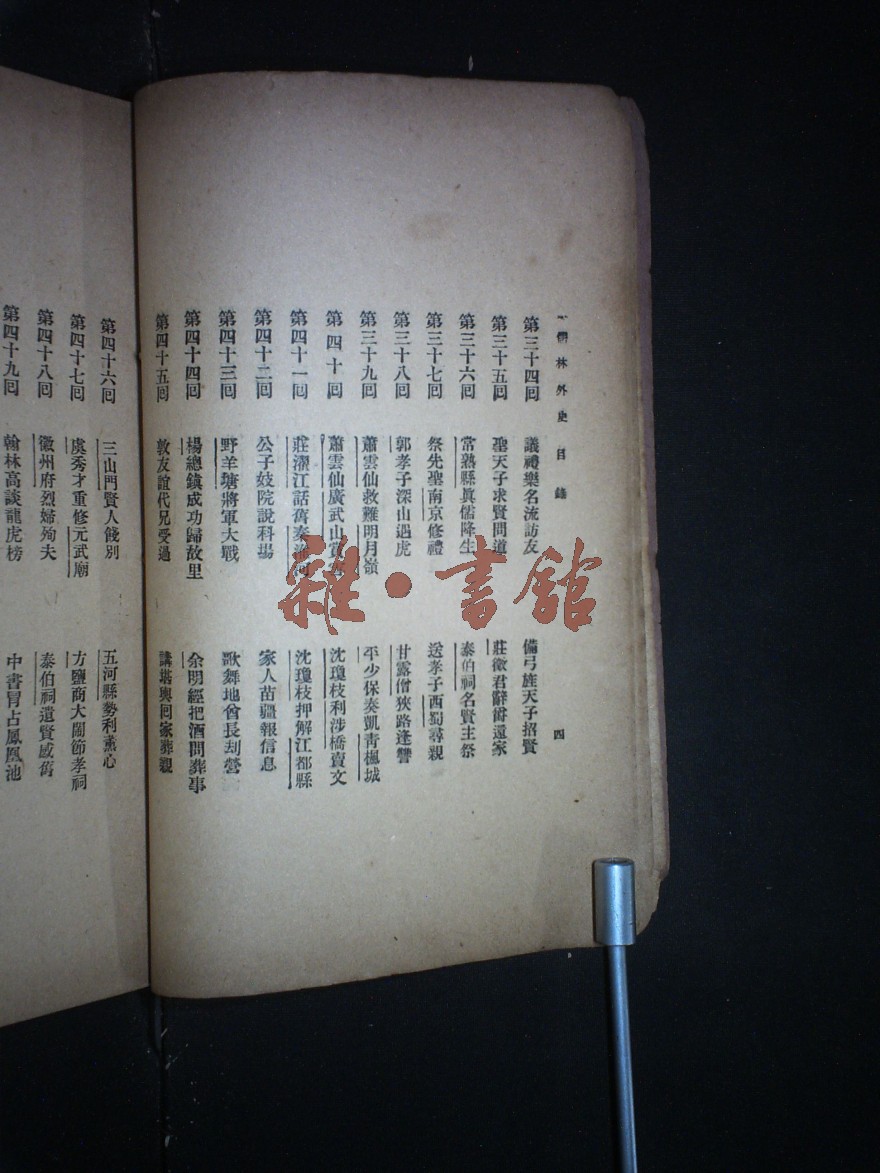 儒林外史 目錄 四
第三十四回 議禮樂名流訪友 備弓旌天子招賢
第三十五回 聖天子求賢問道 莊徵君辭爵還家
第三十六回 常熟縣眞儒降生 泰伯祠名賢主祭
第三十七回 祭先聖南京修禮 送孝子西蜀尋親
第三十八回 郭孝子深山遇虎 甘露僧狹路逢讐
第三十九回 蕭雲仙救難明月嶺 平少保奏凱青楓城
第四十回 蕭雲仙廣武山賞雪 沈瓊枝利涉橋賣文
第四十一回 莊濯江話舊秦淮河 沈瓊枝押解江都縣
第四十二回 公子妓院說科場 家人苗疆報信息
第四十三回 野羊塘將軍大戰 歌舞地酋長刦營
第四十四回 楊總鎮成功歸故里 余明經把酒問葬事
第四十五回 敦友誼代兄受過 講堪輿回家葬親
第四十六回 三山門賢人餞別 五河縣勢利薰心
第四十七回 虞秀才重修元武廟 方鹽商大鬧節孝祠
第四十八回 徽州府烈婦殉夫 泰伯祠遺賢感舊
第四十九回 翰林高談龍虎榜 中書冒占鳳凰池
雜·書館